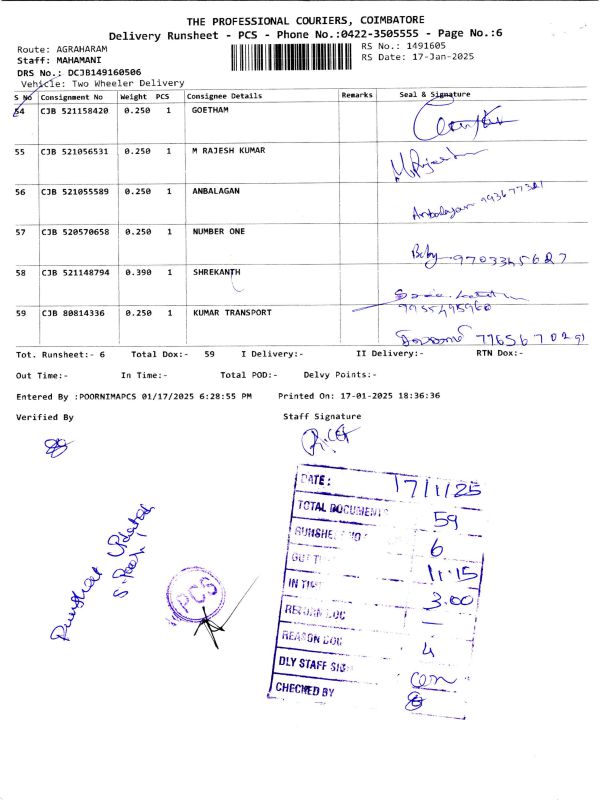 THE PROFESSIONAL COURIERS, COIMBATORE
Delivery Runsheet - PCS - Phone No.:0422-3505555 - Page No.:6
Route: AGRAHARAM
RS No.: 1491605
Staff: MAHAMANI
RS Date: 17-Jan-2025
DRS No.: DCJB149160506
Vehicle: Two Wheeler Delivery
S No Consignment No Weight PCS Consignee Details Remarks Seal & Signature
54 CJB 521158420 0.250 1 GOETHAM
55 CJB 521056531 0.250 1 M RAJESH KUMAR M.Rajesh
56 CJB 521055589 0.250 1 ANBALAGAN Anbalagan
57 CJB 520570658 0.250 1 NUMBER ONE 9703345627
58 CJB 521148794 0.390 1 SHREKANTH
59 CJB 80814336 0.250 1 KUMAR TRANSPORT
Tot. Runsheet:- 6 Total Dox:- 59 I Delivery:- II Delivery:- RTN Dox:-
Out Time:- In Time:- Total POD:- Delvy Points:-
Entered By :POORNIMAPCS 01/17/2025 6:28:55 PM Printed On: 17-01-2025 18:36:36
Verified By Staff Signature
DATE : 17/1/25
TOTAL DOCUMENTS 59
RUNSHEET NO 6
OUT TIME 11.15
IN TIME 3.00
RETURN DOC —
REASON DOC 4
DLY STAFF SIGN
CHECKED BY
PCS
Updated